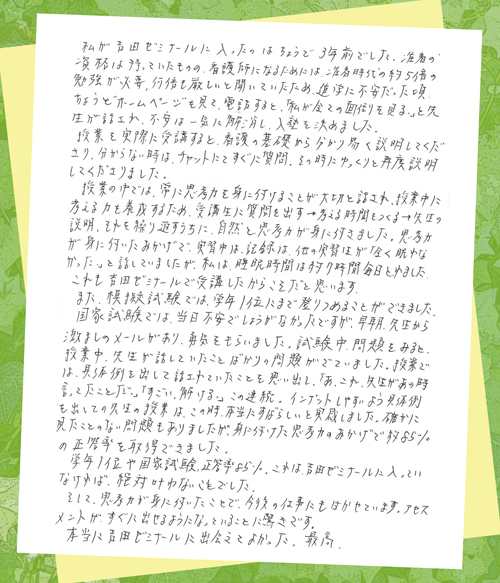 私が吉田ゼミナールに入ったのはちょうど3年前でした。准看の
資格は持っていたものの、看護師になるためには、准看時代の約5倍の
勉強が必要、何倍も厳しいと聞いていたため、進学に不安だった頃、
ちょうどホームページを見て、電話すると、「私が全ての面倒を見る。」と先
生が話され、不安は一気に解消し、入塾を決めました。
授業を実際に受講すると、看護の基礎から分かり易く説明してくだ
さり、分からない時は、チャットにてすぐに質問、その時にゆっくりと再度説明
してくださりました。
授業の中では、常に思考力を身に付けることが大切と話され、授業中に
考える力を養成するため、受講生に質問を出す→考える時間をつくる→先生の
説明、それを繰り返すうちに、自然と思考力が身に付きました。思考力
が身に付いたおかげで、実習中は、記録は、他の実習生が「全く眠れな
かった。」と話していましたが、私は、睡眠時間は約7時間毎日とれました。
これも吉田ゼミナールで受講したからこそだと思います。
また、模擬試験では、学年1位にまで登りつめることができました。
国家試験では、当日不安でしょうがなかったですが、早朝、先生から
激ましのメールがあり、勇気をもらいました。試験中、問題をみると、
授業中、先生が話していたことばかりの問題がでていました。授業で
は、具体例を出して話されていたことを思い出し、「あ、これ、先生があの時
言ってたことだ。」「すごい、解ける。」この連続。インプットしやすいよう具体例
も出しての先生の授業は、この時、本当にすばらしいと実感しました。確かに
見たことのない問題もありましたが、身に付けた思考力のおかげで約85%
の正答率を取得できました。
学年1位や国家試験正答率85%、これは、吉田ゼミナールに入ってい
なければ、絶対叶わないことでした。
そして、思考力が身に付いたことで、今後の仕事にもはかせています。アセス
メントが、すぐに出せるようになっていることに驚きです。
本当に吉田ゼミナールに出会えてよかった。最高。